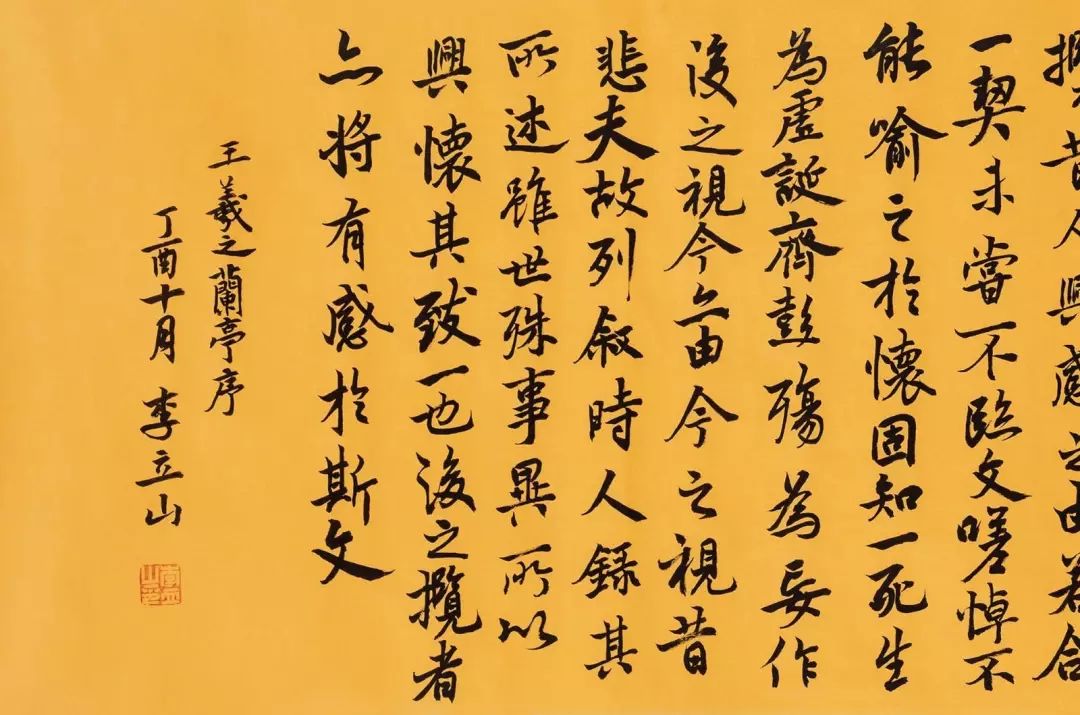 昔人興感之由若合
一契未嘗不臨文嗟悼不
能喻之於懷固知一死生
為虛誕齊彭殤為妄作
後之視今亦由今之視昔
悲夫故列敘時人錄其
所述雖世殊事異所以
興懷其致一也後之攬者
亦將有感於斯文
王羲之蘭亭序
丁酉十月 李立山